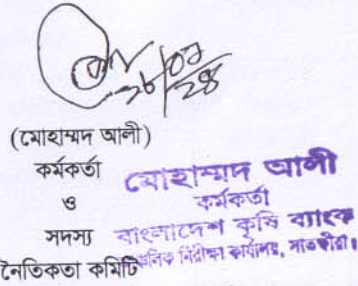 ২৮/০১/২৪
(মোহাম্মদ আলী)
কর্মকর্তা
ও
সদস্য
নৈতিকতা কমিটি
মোহাম্মদ আলী
কর্মকর্তা
বাংলাদেশ কৃষি ব্যাংক
নিরীক্ষা কার্যালয়, সাতক্ষীরা।